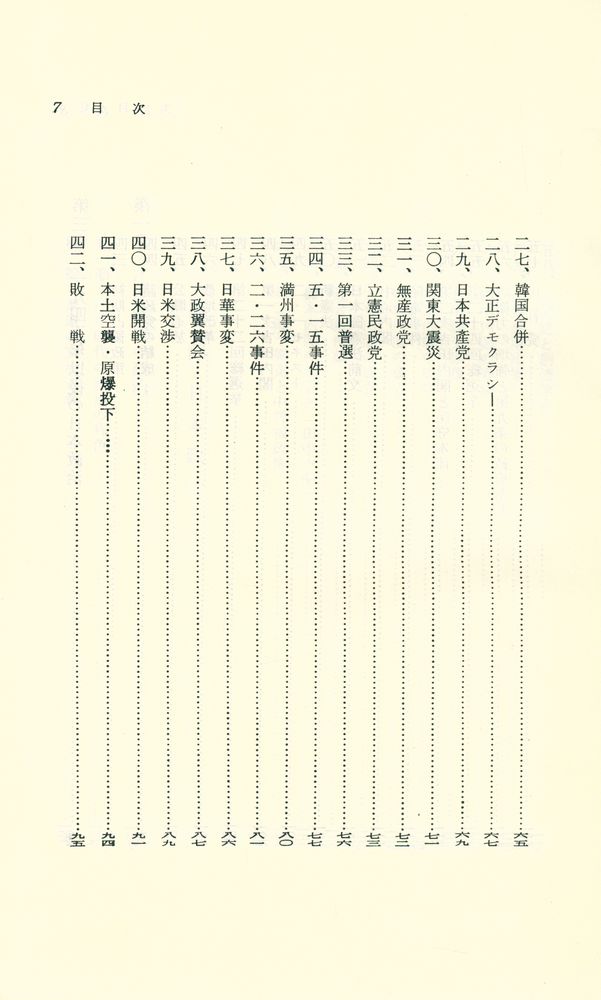 7 目次
二七、韓国合併……六五
二八、大正デモクラシー……六七
二九、日本共産党……六九
三〇、関東大震災……七一
三一、無産政党……七二
三二、立憲民政党……七三
三三、第一回普選……七六
三四、五・一五事件……七七
三五、満州事変……八〇
三六、二・二六事件……八一
三七、日華事変……八六
三八、大政翼賛会……八七
三九、日米交渉……八九
四〇、日米開戦……九一
四一、本土空襲・原爆投下……九四
四二、敗　戦……九五